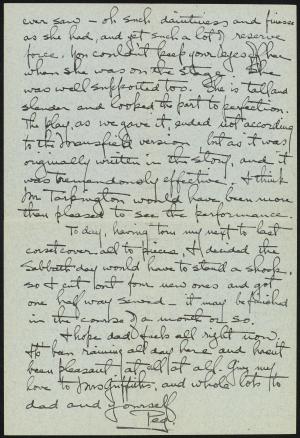 ever saw - oh such daintiness and finesse
as she had, and yet such a lot of reserve
force. You couldn't keep your eyes off her
when she was on the stage. She
was well supported too. She is tall and
slender and looked the part to perfection.
The play, as we gave it, ended not according
to the Mansfield version but as it was
originally written in the story, and it
was tremendously effective. I think
Mr Tarkington would have been more
than pleased to see the performance.
Today, having torn my next to last
corset cover all to pieces, I decided the
Sabbath day would have to stand a shock,
so I cut out four new ones and got
one half way sewed - it may be finished
in the course of a month or so.
I hope dad feels all right now.
It's been raining all day here and hasn't
been pleasant at all at all. Give my
love to Mrs Griffiths, and whole lots to
dad and yourself
Peg.